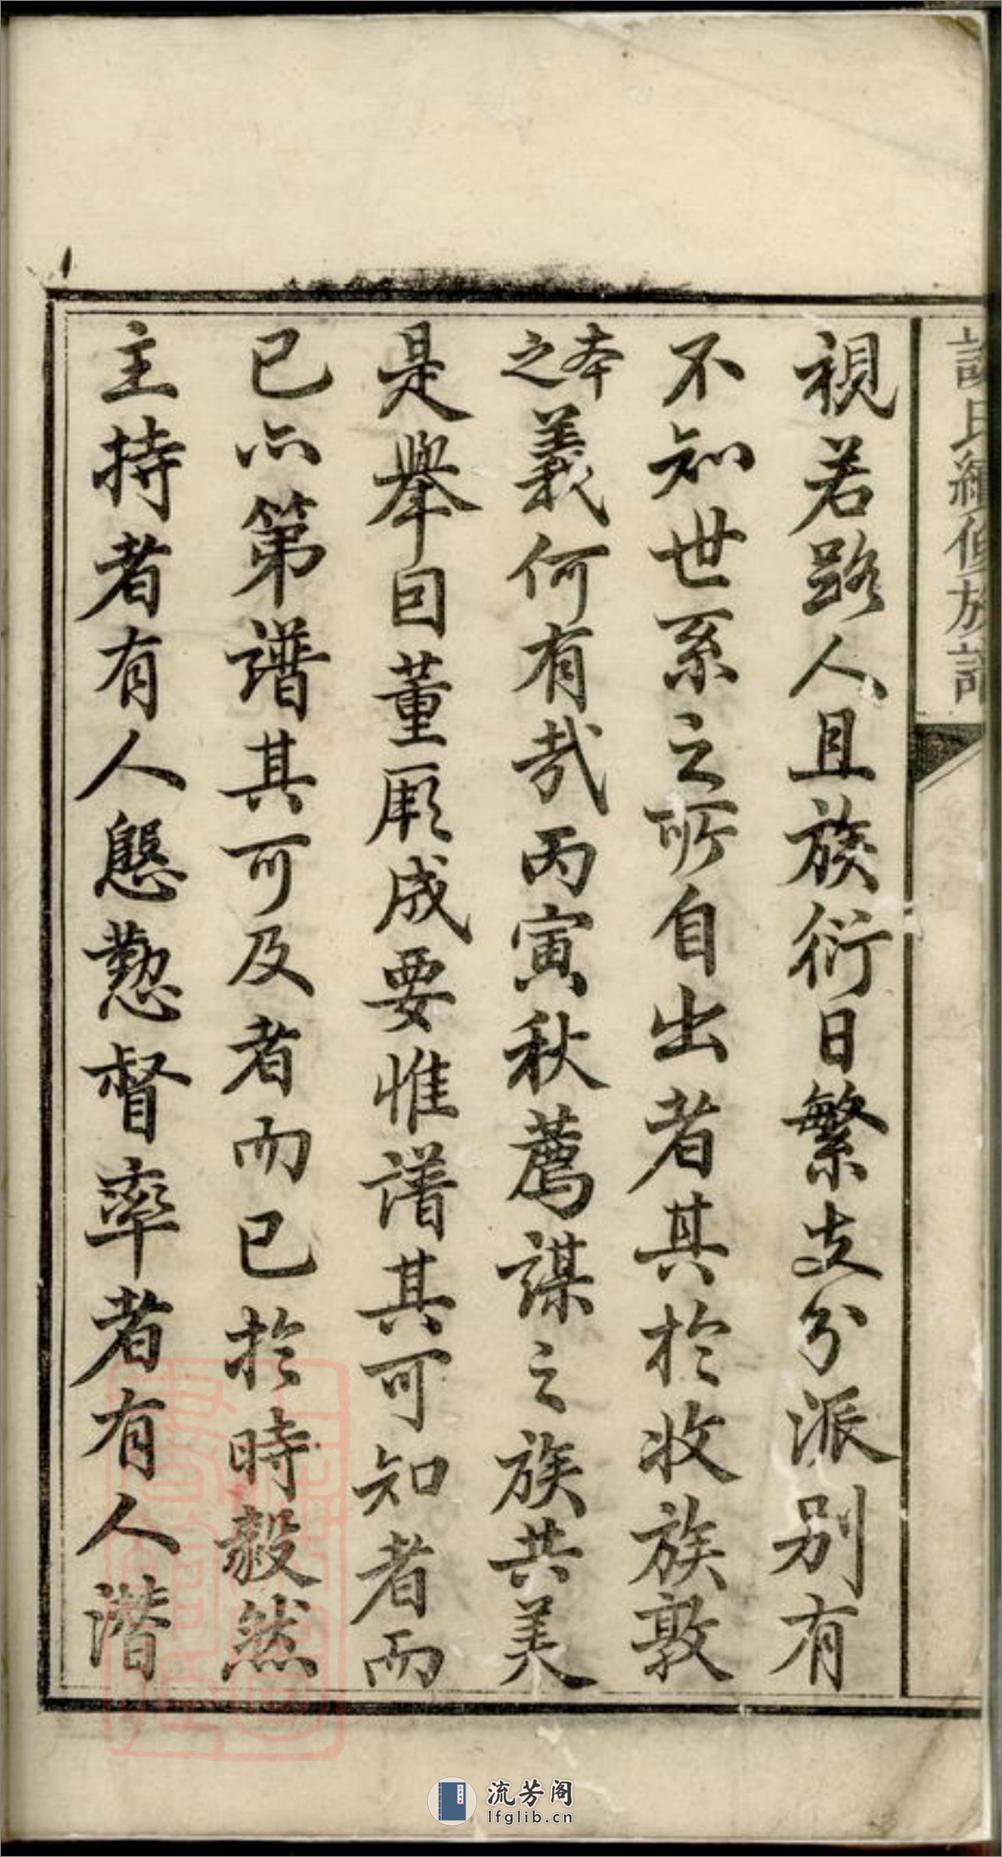 氏續修族譜
視若路人且族衍日繁支分派別有
不知世系之所自出者其於收族敦
本之義何有哉丙寅秋薦謀之族共美
是舉因董厥成要惟譜其可知者而
已亦第譜其可及者而已於時毅然
主持者有人慇懃督率者有人潛
流芳阁
lfglib.cn